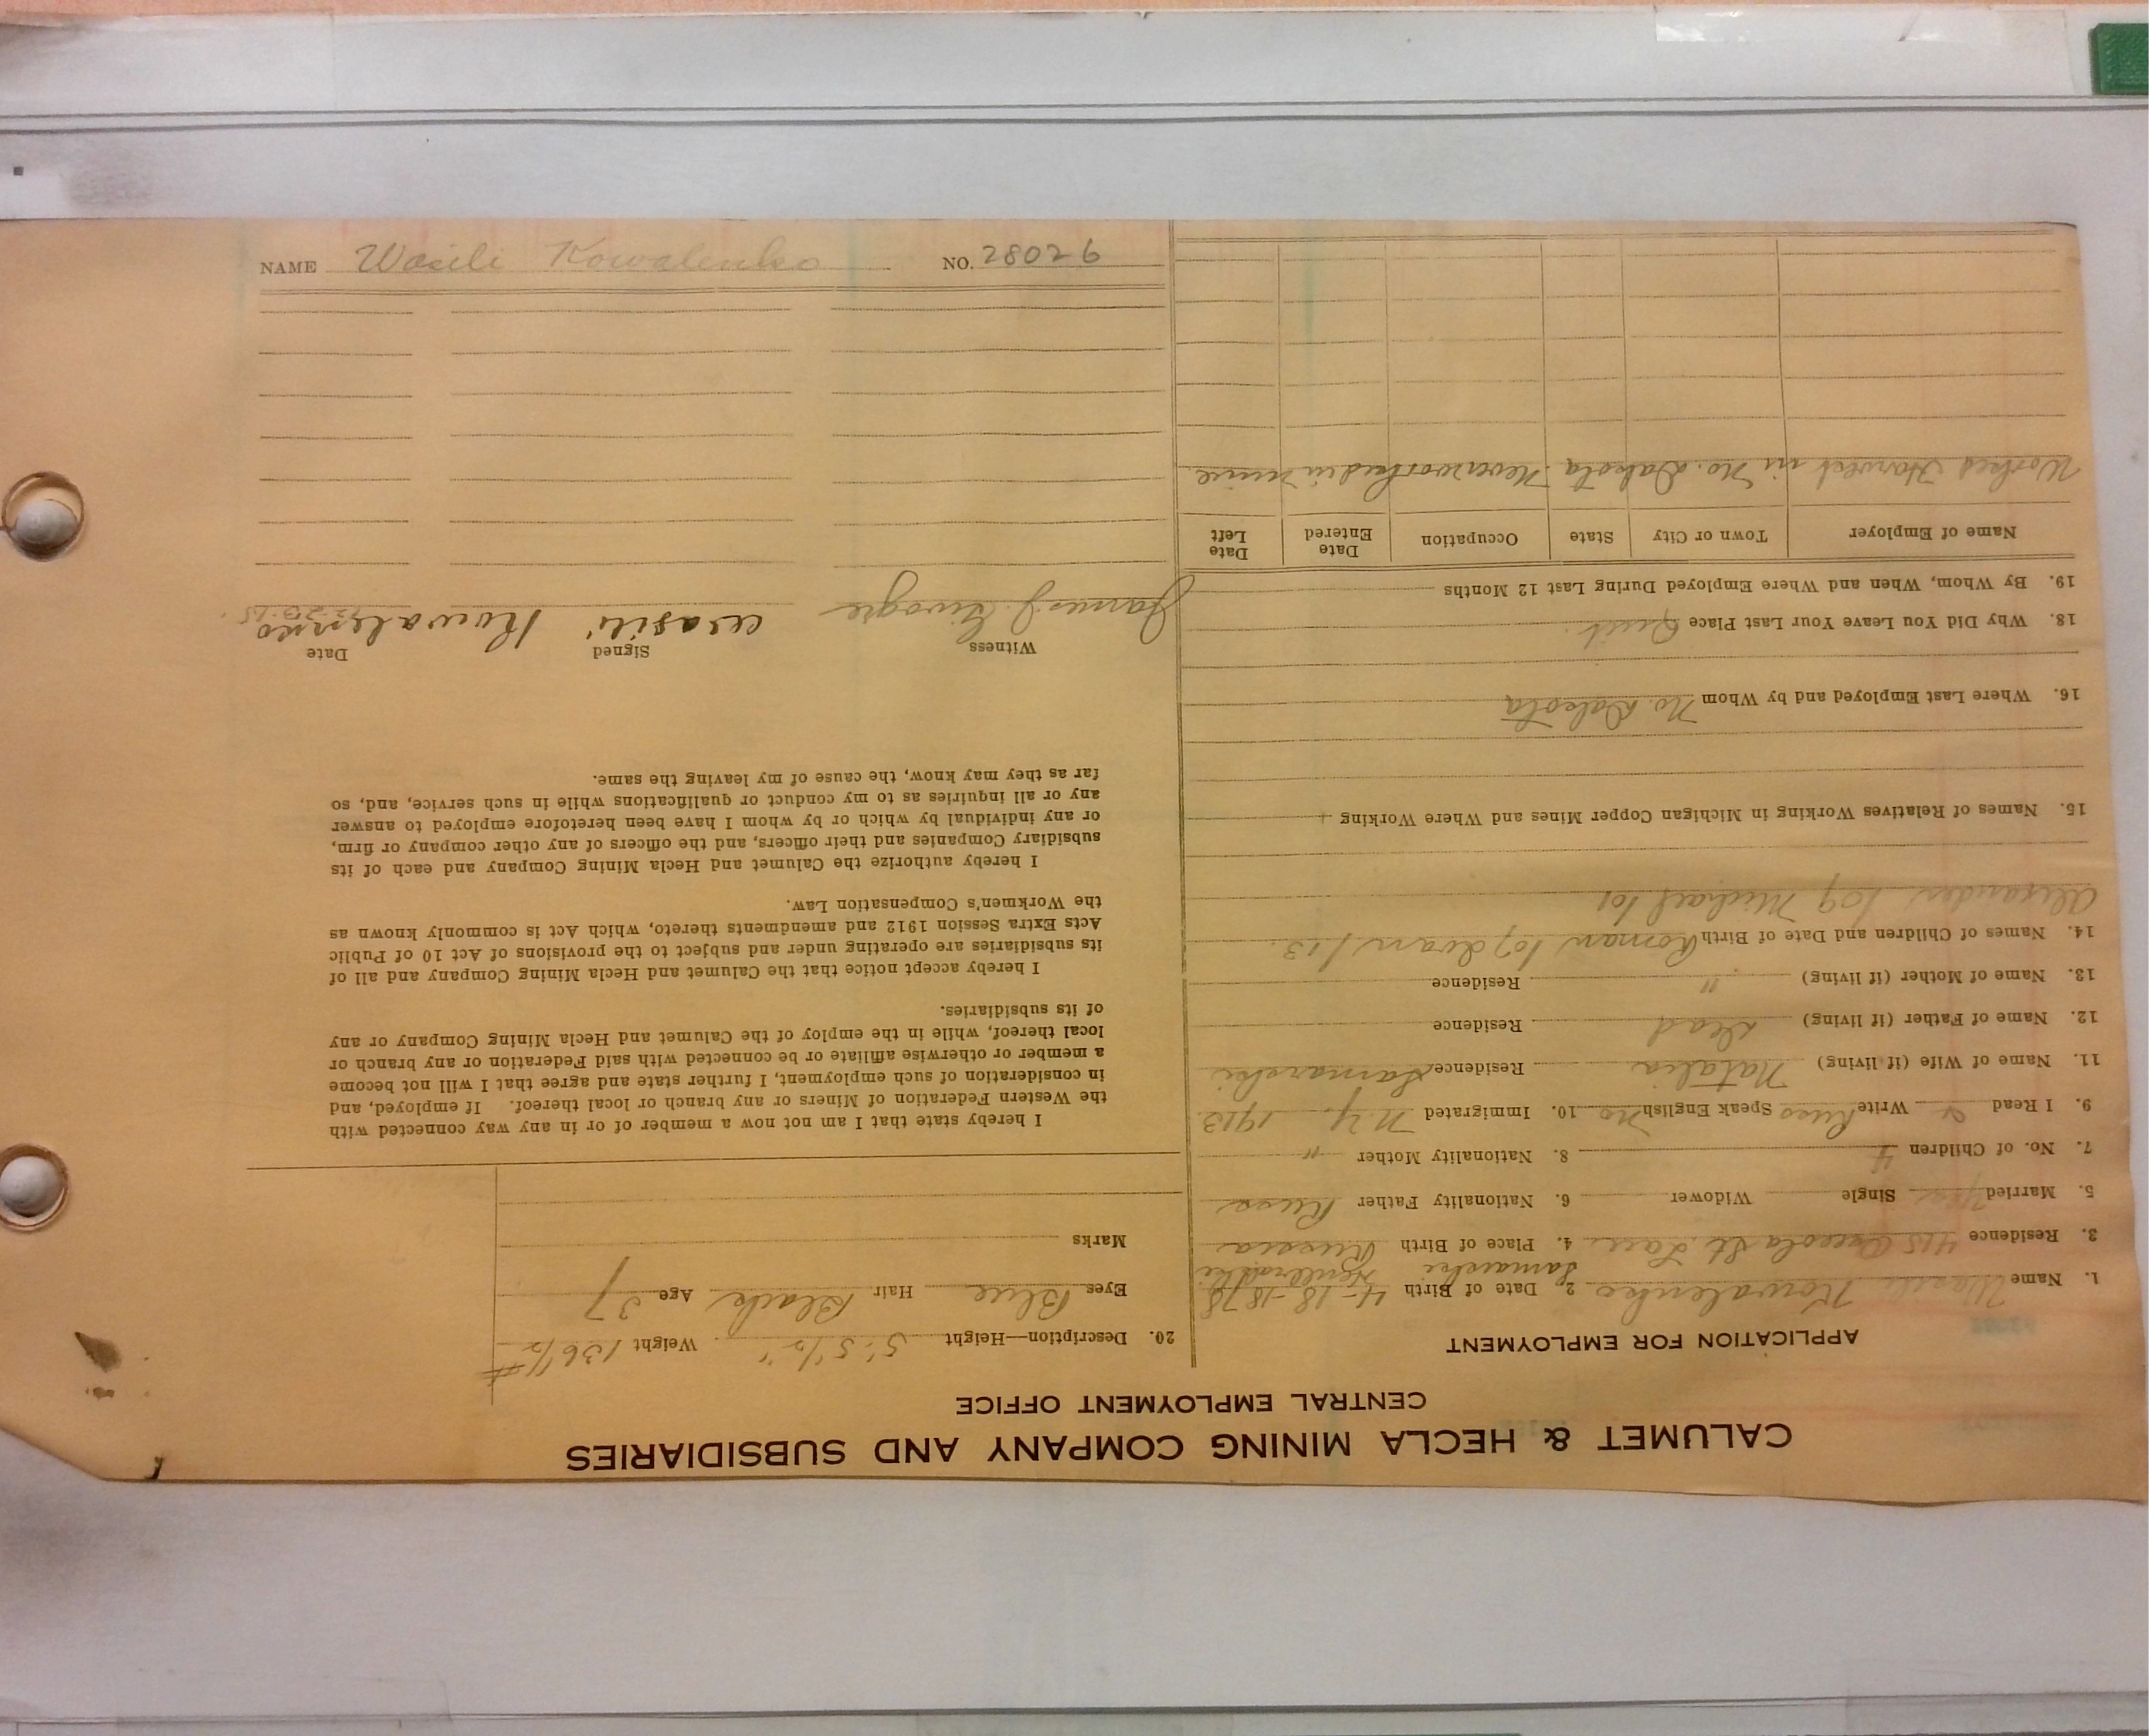 CALUMET & HECLA MINING COMPANY AND SUBSIDIARIES
CENTRAL EMPLOYMENT OFFICE
APPLICATION FOR EMPLOYMENT
1. Name Wasili Kowalenko 2. Date of Birth 4-18-1878
Samarski
3. Residence 415 Osceola St. Lau. 4. Place of Birth Russia
5. Married Yes Single Widower 6. Nationality Father Russ
7. No. of Children 4 8. Nationality Mother "
9. I Read & Write Russ Speak English No 10. Immigrated N.Y. 1913
11. Name of Wife (if living) Natalia Residence Samarski
12. Name of Father (if living) Dead Residence
13. Name of Mother (if living) " Residence
14. Names of Children and Date of Birth Roman /07 Ivan /13.
Alexander /09 Michael /01
15. Names of Relatives Working in Michigan Copper Mines and Where Working
16. Where Last Employed and by Whom No. Dakota
18. Why Did You Leave Your Last Place Quit.
19. By Whom, When and Where Employed During Last 12 Months
Name of Employer Town or City State Occupation Date Entered Date Left
Worked Harvest in No. Dakota. Never worked in mine
20. Description—Height 5' 5 1/2" Weight 136 1/2 #
Eyes Blue Hair Black Age 37
Marks
I hereby state that I am not now a member of or in any way connected with
the Western Federation of Miners or any branch or local thereof. If employed, and
in consideration of such employment, I further state and agree that I will not become
a member or otherwise affiliate or be connected with said Federation or any branch or
local thereof, while in the employ of the Calumet and Hecla Mining Company or any
of its subsidiaries.
I hereby accept notice that the Calumet and Hecla Mining Company and all of
its subsidiaries are operating under and subject to the provisions of Act 10 of Public
Acts Extra Session 1912 and amendments thereto, which Act is commonly known as
the Workmen's Compensation Law.
I hereby authorize the Calumet and Hecla Mining Company and each of its
subsidiary Companies and their officers, and the officers of any other company or firm,
or any individual by which or by whom I have been heretofore employed to answer
any or all inquiries as to my conduct or qualifications while in such service, and, so
far as they may know, the cause of my leaving the same.
Witness Signed Date
James J. wasili Kowalenko
NAME Wasili Kowalenko NO. 28026